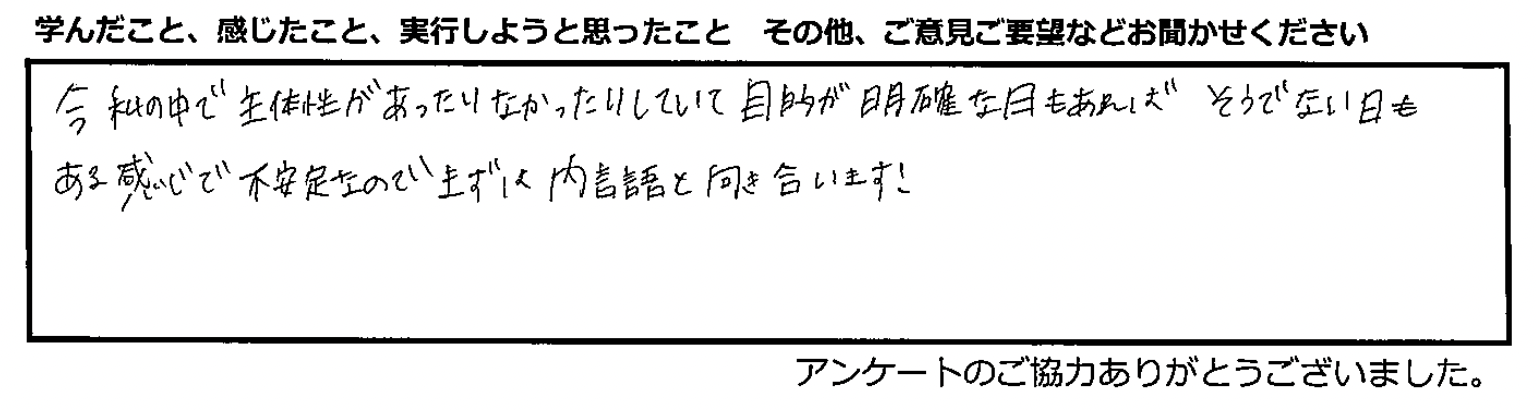 学んだこと、感じたこと、実行しようと思ったこと　その他、ご意見ご要望などお聞かせください
今私の中で主体性があったりなかったりしていて目的が明確な日もあれば そうでない日も
ある感じで不安定なのでまずは内言語と向き合います!
アンケートのご協力ありがとうございました。